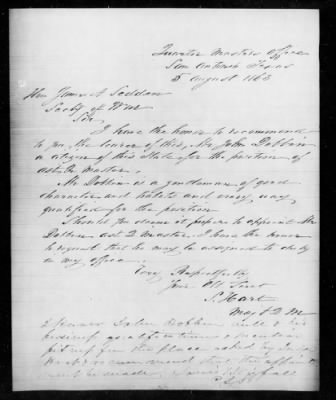 Quarter Masters Office
San Antonio Texas
5 August 1863
Hon James A Seddon
Secty of War
Sir
I have the honor to recommend
to you, the bearer of this, Mr John Dobbin
a citizen of this State for the position of
asst Qr master.
Mr Dobbin is a gentleman of good
character and habits and every way
qualified for the position
Should you deem it proper to appoint Mr
Dobbin asst Q master, I have the honor
to request that he may be assigned to duty
in my office.
Very Respectfully
Your Obt Servt
S. Hart
Maj & Q M
I John Dobbin
business
for the place
that the
be made